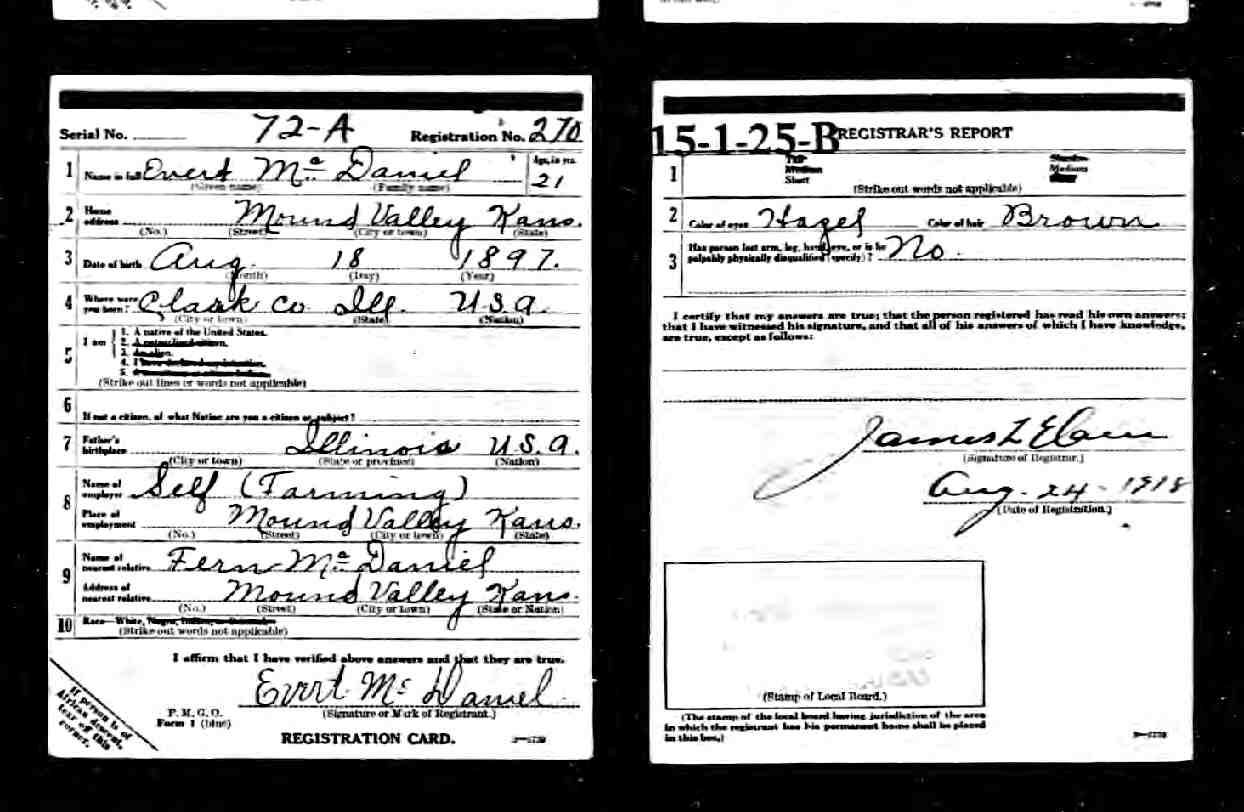 Serial No. 72-A Registration No. 270
1 Name in full Evert Mc Daniel Age, in yrs. 21
(Given name) (Family name)
2 Home address Mound Valley Kans.
(No.) (Street) (City or town) (State)
3 Date of birth Aug. 18 1897.
(Month) (Day) (Year)
4 Where were you born? Clark Co Ill. U.S.A.
(City or town) (State) (Nation)
5 I am
1. A native of the United States.
2. A naturalized citizen.
3. An alien.
4. I have declared my intention.
5.
(Strike out lines or words not applicable)
6 If not a citizen, of what Nation are you a citizen or subject?
7 Father's birthplace Illinois U.S.A.
(City or town) (State or province) (Nation)
8 Name of employer Self (Farming)
Place of employment Mound Valley Kans.
(No.) (Street) (City or town) (State)
9 Name of nearest relative Fern Mc Daniel
Address of nearest relative Mound Valley Kans.
(No.) (Street) (City or town) (State or Nation)
10 Race—White, Negro, Indian, or Oriental
(Strike out words not applicable)
I affirm that I have verified above answers and that they are true.
Evert Mc Daniel
P. M. G. O. (Signature or Mark of Registrant.)
Form 1 (blue)
REGISTRATION CARD.
If person is
African descent,
tear off this
corner.
15-1-25-B REGISTRAR'S REPORT
1 Tall Slender
Medium Medium
Short
(Strike out words not applicable)
2 Color of eyes Hazel Color of hair Brown
3 Has person lost arm, leg, hand, eye, or is he No.
palpably physically disqualified (specify)?
I certify that my answers are true; that the person registered has read his own answers;
that I have witnessed his signature, and that all of his answers of which I have knowledge,
are true, except as follows:
James L
(Signature of Registrar.)
Aug. 24 - 1918
(Date of Registration.)
(Stamp of Local Board.)
(The stamp of the local board having jurisdiction of the area
in which the registrant has his permanent home shall be placed
in this box.)